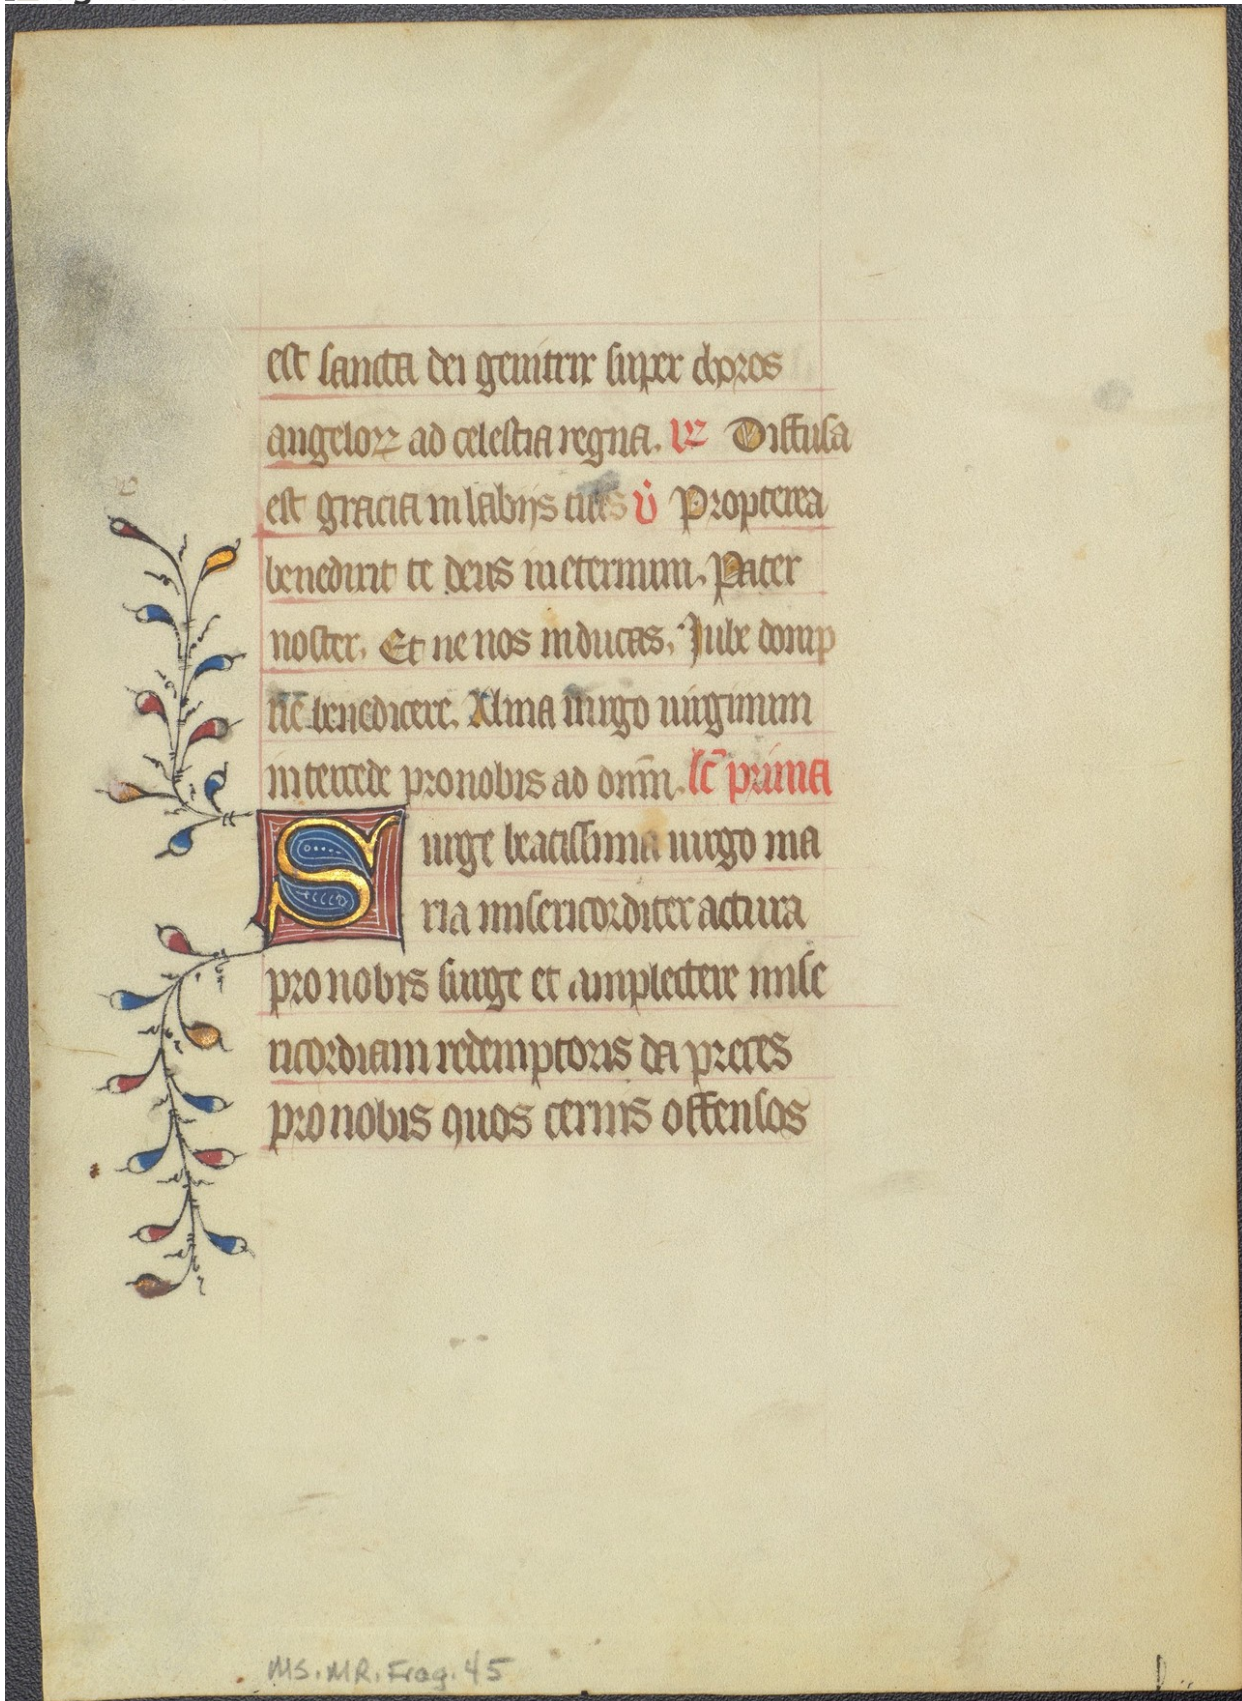 est sancta dei genitrix super choros
angeloꝝ ad celestia regna. ꝟ Diffusa
est gracia in labijs tuis v̇ Propterea
benedixit te deus in eternum. Pater
noster. Et ne nos inducas. Iube domp
ne benedicere. Alma uirgo uirginum
intercede pro nobis ad dnm̄. lc̄ prima
Surge beatissima uirgo ma
ria misericorditer actura
pro nobis surge et amplectere mise
ricordiam redemptoris da preces
pro nobis quos cernis offensos
MS. MR. Frag. 45